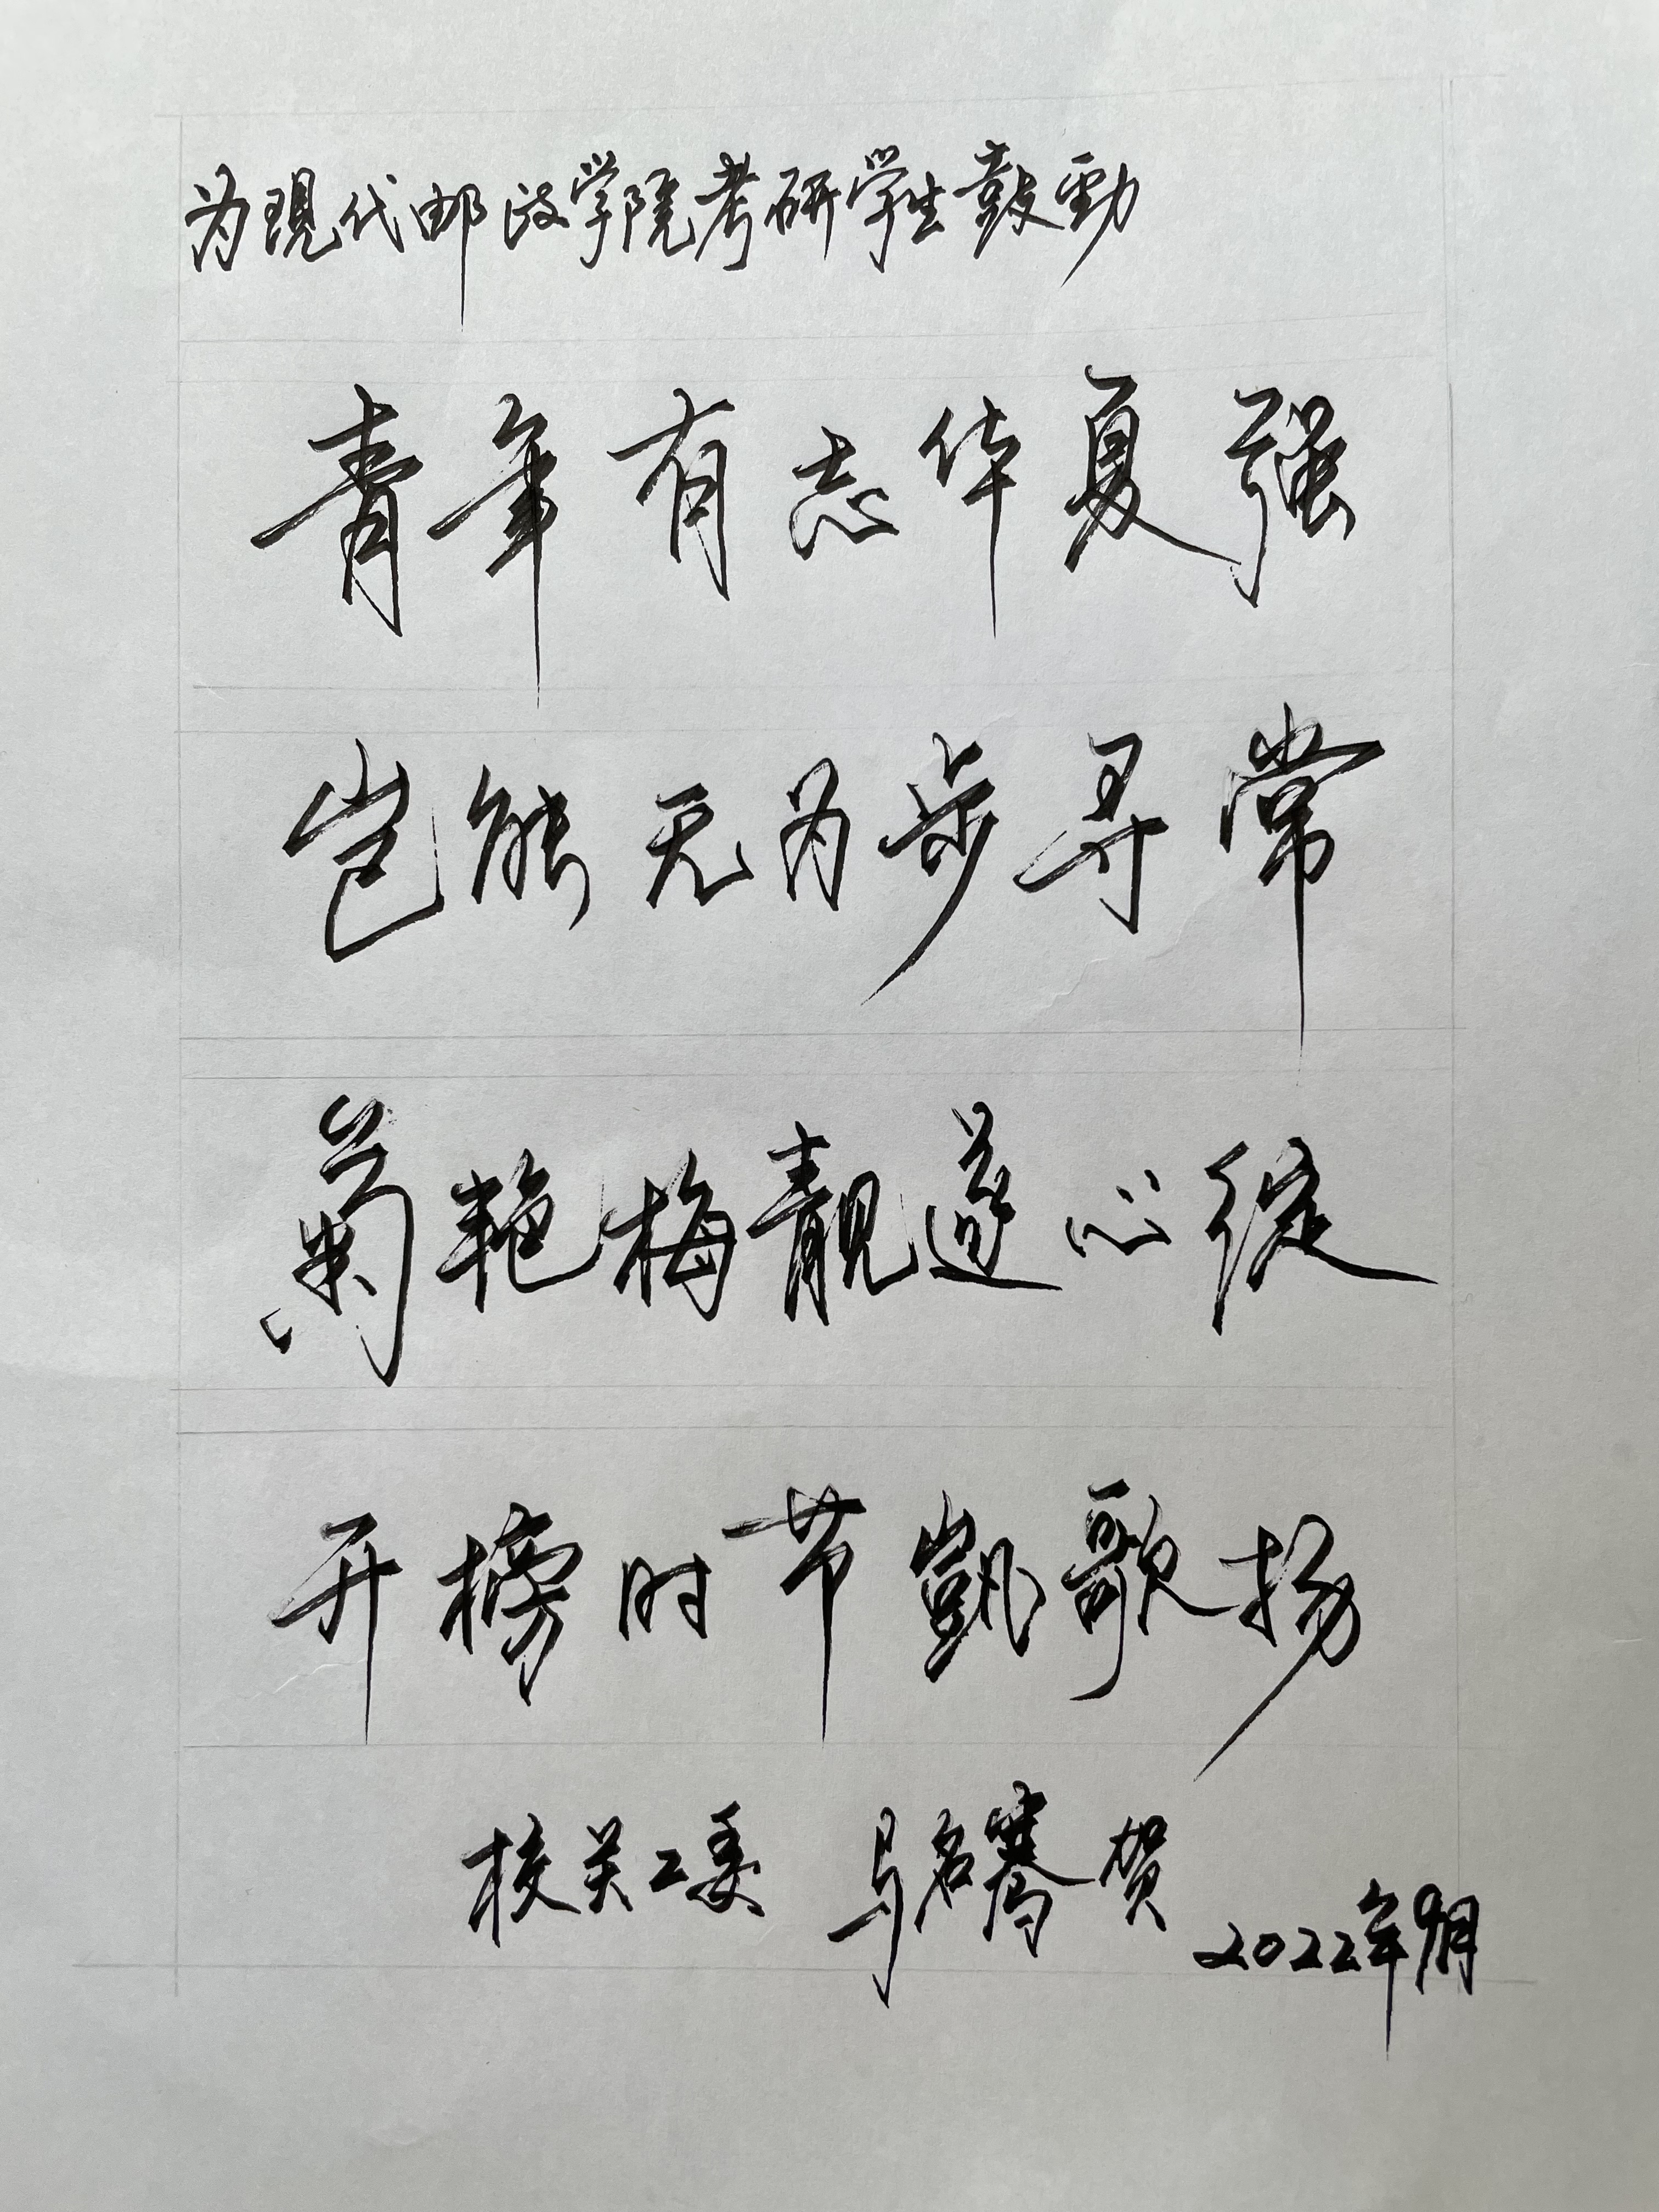 为現代邮政学院考研学生鼓勁
青年有志华夏强
岂能无为步寻常
菊艳梅靓遂心绽
开榜时节凱歌扬
校关工委 马名骞 贺
2022年9月